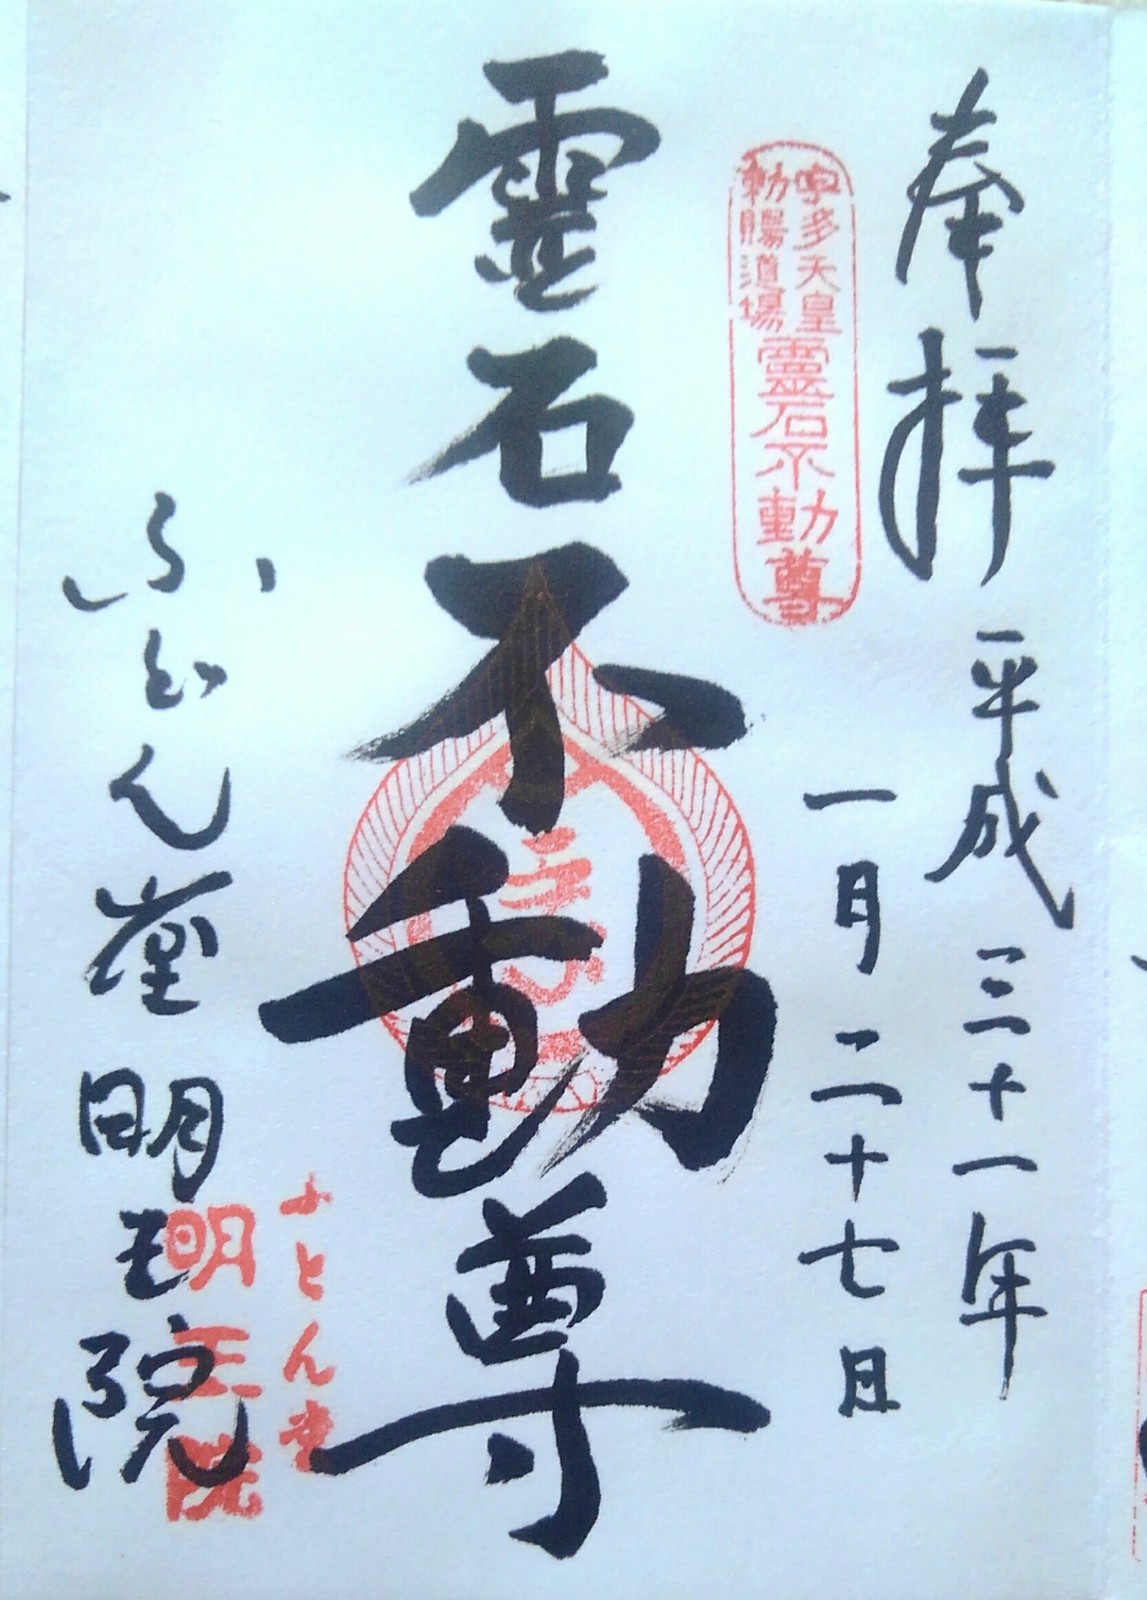 奉拝 平成三十一年
一月二十七日
宇多天皇
勅賜道場
靈石不動尊
靈石不動尊
ふどん堂明王院
ふどん堂
明王院